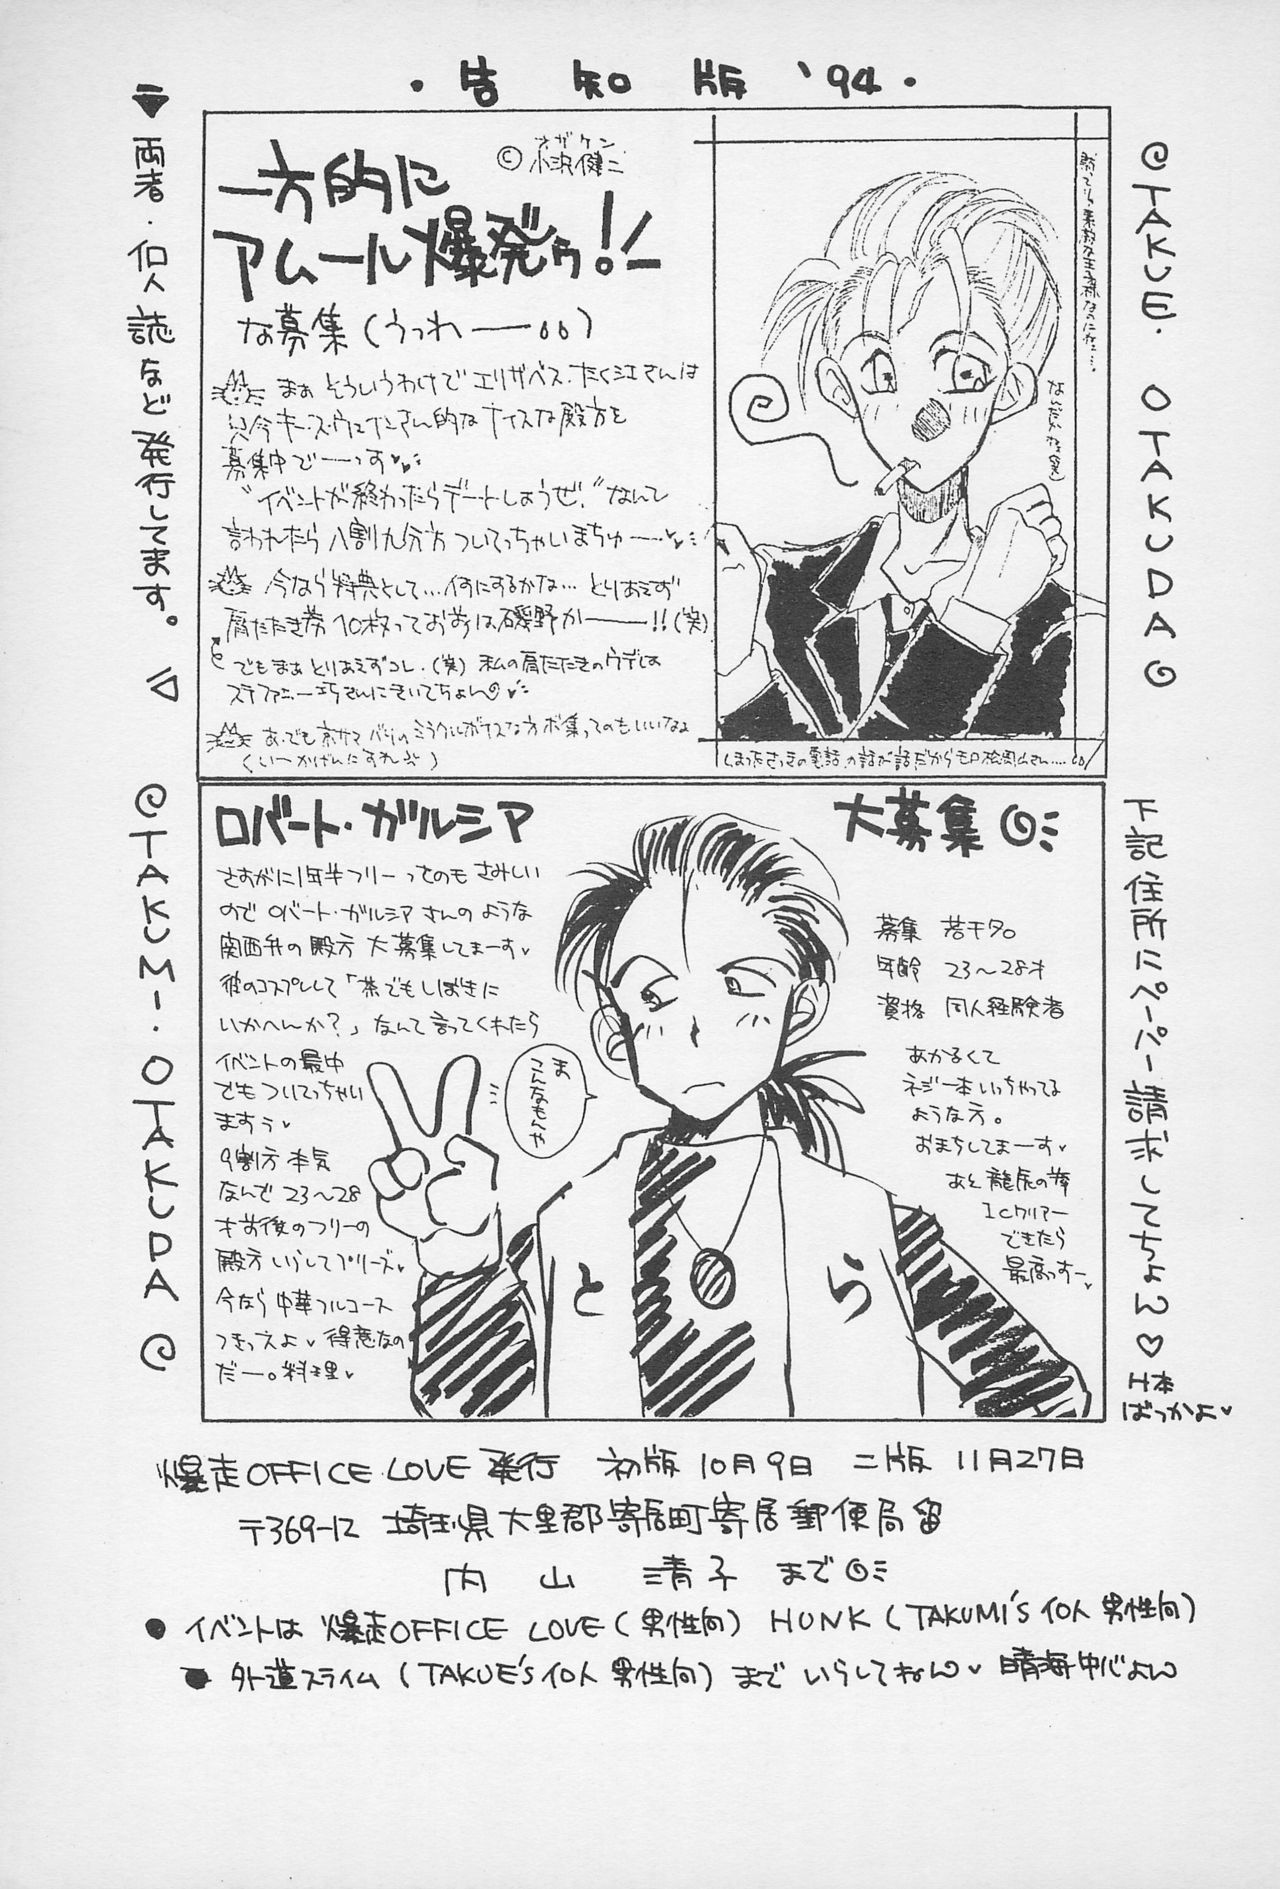 ・告知版'94・
@TAKUE・OTAKUDA@
▼両者・個人誌など発行してます。◁
一方的に
アムール爆発ゥ!!
©小沢健二
オザケン
な募集(うっわーー。。)
まぁ そういうわけで エリザベス・たく江さんは
只今キース・ウェインさん的なナイスな殿方を
募集中でーーっす♥♥
"イベントが終わったらデートしようぜ。"なんて
言われたら 八割九分方 ついてっちゃいまちゅーー♥
今なら特典として…何にするかな… とりあえず
肩たたき券10枚っておおお前は磯野かーーー!!(笑)
でもまぁとりあえずコレ・(笑) 私の肩たたきのウデは
ステファニー・巧さんにきいてちょん♥
あ、でも京サマバリのミラクルボイスな方が集ってのもいいなょ
(いーかげんにすれ)
ロバート・ガルシア
大募集@
さすがに1年半フリーってのも さみしい
ので ロバート・ガルシアさんのような
関西弁の殿方 大募集してまーす♥
彼のコスプレして「茶でもしばきに
いかへんか?」なんて言ってくれたら
イベントの最中
でもついてっちゃい
ますぅ♥
9割方 本気
なんで 23〜28
才前後のフリーの
殿方 いらしてプリーズ♥
今なら 中華フルコース
つきっスよ♥得意なの
だー。料理♥
ま
こんなもんや
募集 若干名
年齢 23〜28才
資格 同人経験者
あかるくて
ネジ一本いっちゃってる
ような方。
おまちしてまーす♥
あと 龍虎の拳
1Cクリアー
できたら
最高っすー♥
と
ら
@TAKUMI・OTAKUDA@
下記住所にペーパー請求してちょん♡
H本
ばっかよ♥
爆走OFFICE LOVE 発行 初版 10月9日 二版 11月27日
〒369-12 埼玉県大里郡寄居町寄居郵便局留
内山 清子 まで@
●イベントは 爆走OFFICE LOVE(男性向) HUNK(TAKUMI'S 個人 男性向)
●外道スライム(TAKUE'S個人 男性向)まで いらしてねん♥ 晴海中心よん